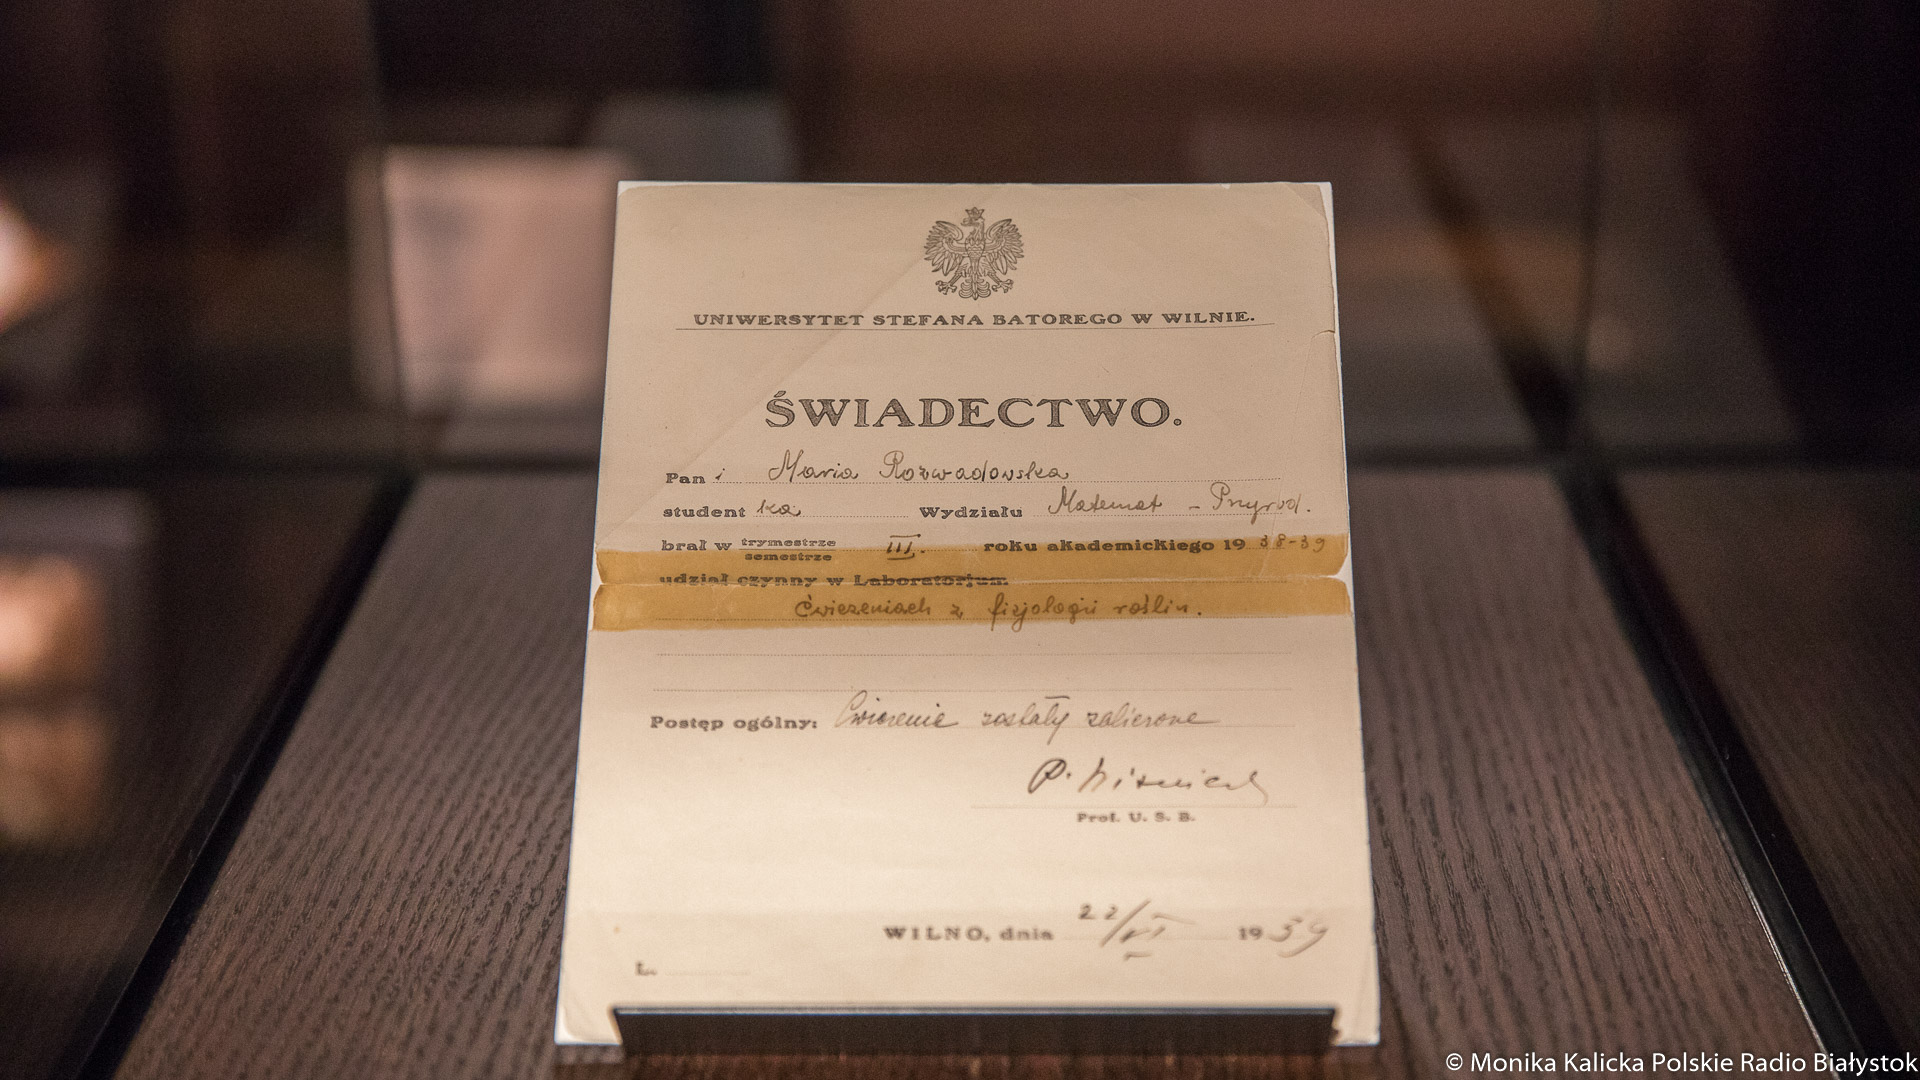 UNIWERSYTET STEFANA BATOREGO W WILNIE.
ŚWIADECTWO.
Pan i Maria Rozwadowska
student ka Wydziału Matemat - Przyrod.
brał w trymestrze semestrze III. roku akademickiego 19 38-39
udział czynny w Laboratorjum
Ćwiczeniach z fizjologii roślin.
Postęp ogólny: Ćwiczenie zostały zaliczone
P.
Prof. U. S. B.
WILNO, dnia 22/VI 1939
L.
© Monika Kalicka Polskie Radio Białystok